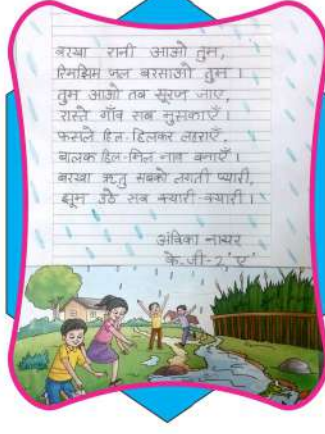 बरखा रानी आओ तुम,
रिमझिम जल बरसाओ तुम ।
तुम आओ तब सूरज जाए,
रास्ते गाँव सब मुसकाएँ ।
फसले हिल-हिलकर लहराएँ,
बालक हिल-मिल नाव बनाएँ ।
बरखा ऋतु सबको लगती प्यारी,
झूम उठे सब क्यारी-क्यारी ।
अंविका नायर
के.जी-2,'ए'